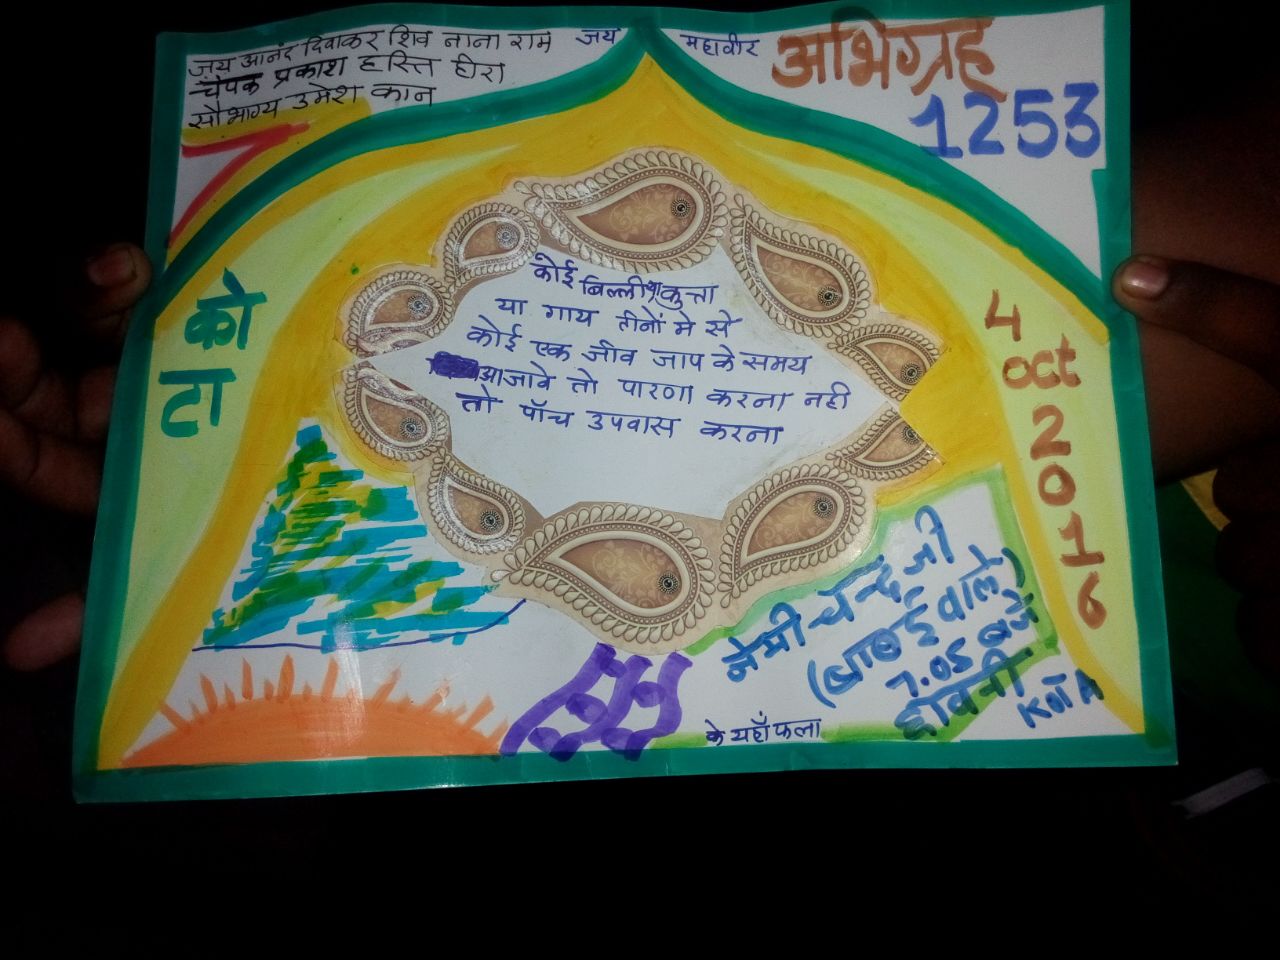 जय आनंद दिवाकर शिव नाना राम जय महावीर
चंपक प्रकाश हस्ति हीरा
सौभाग्य उमेश कान
अभिग्रह
1253
को
टा
कोई बिल्ली कुत्ता
या गाय तीनों मे से
कोई एक जीव जाप के समय
आजावे तो पारणा करना नही
तो पाँच उपवास करना
4
oct
2
0
1
6
नेमीचन्द जी
वाले
7.05 बजे
छावनी
KOTA
के यहाँ फला